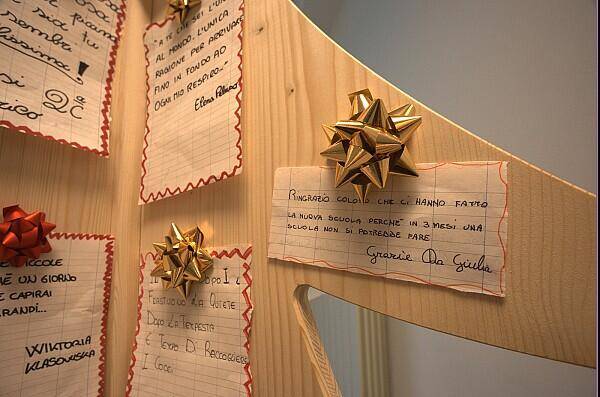 sia tu
sembr
issima!
si 2ª C
rico
"A TE CHE SEI L'UN
AL MONDO. L'UNICA
RAGIONE PER ARRIVARE
FINO IN FONDO AD
OGNI MIO RESPIRO..."
Elena
RINGRAZIO COLO CHE CI HANNO FATTO
LA NUOVA SCUOLA PERCHÈ IN 3 MESI UNA
SCUOLA NON SI POTREBBE FARE
Grazie Da Giulia
ICCOLE
HÉ UN GIORNO
E CAPIRAI
RANDI...
WIKTORIA
KLASOWSKA
DOPO IL
FRASTUONO LA QUIETE
DOPO LA TEMPESTA
È TEMPO DI RACCOGLIERE
I COCCI